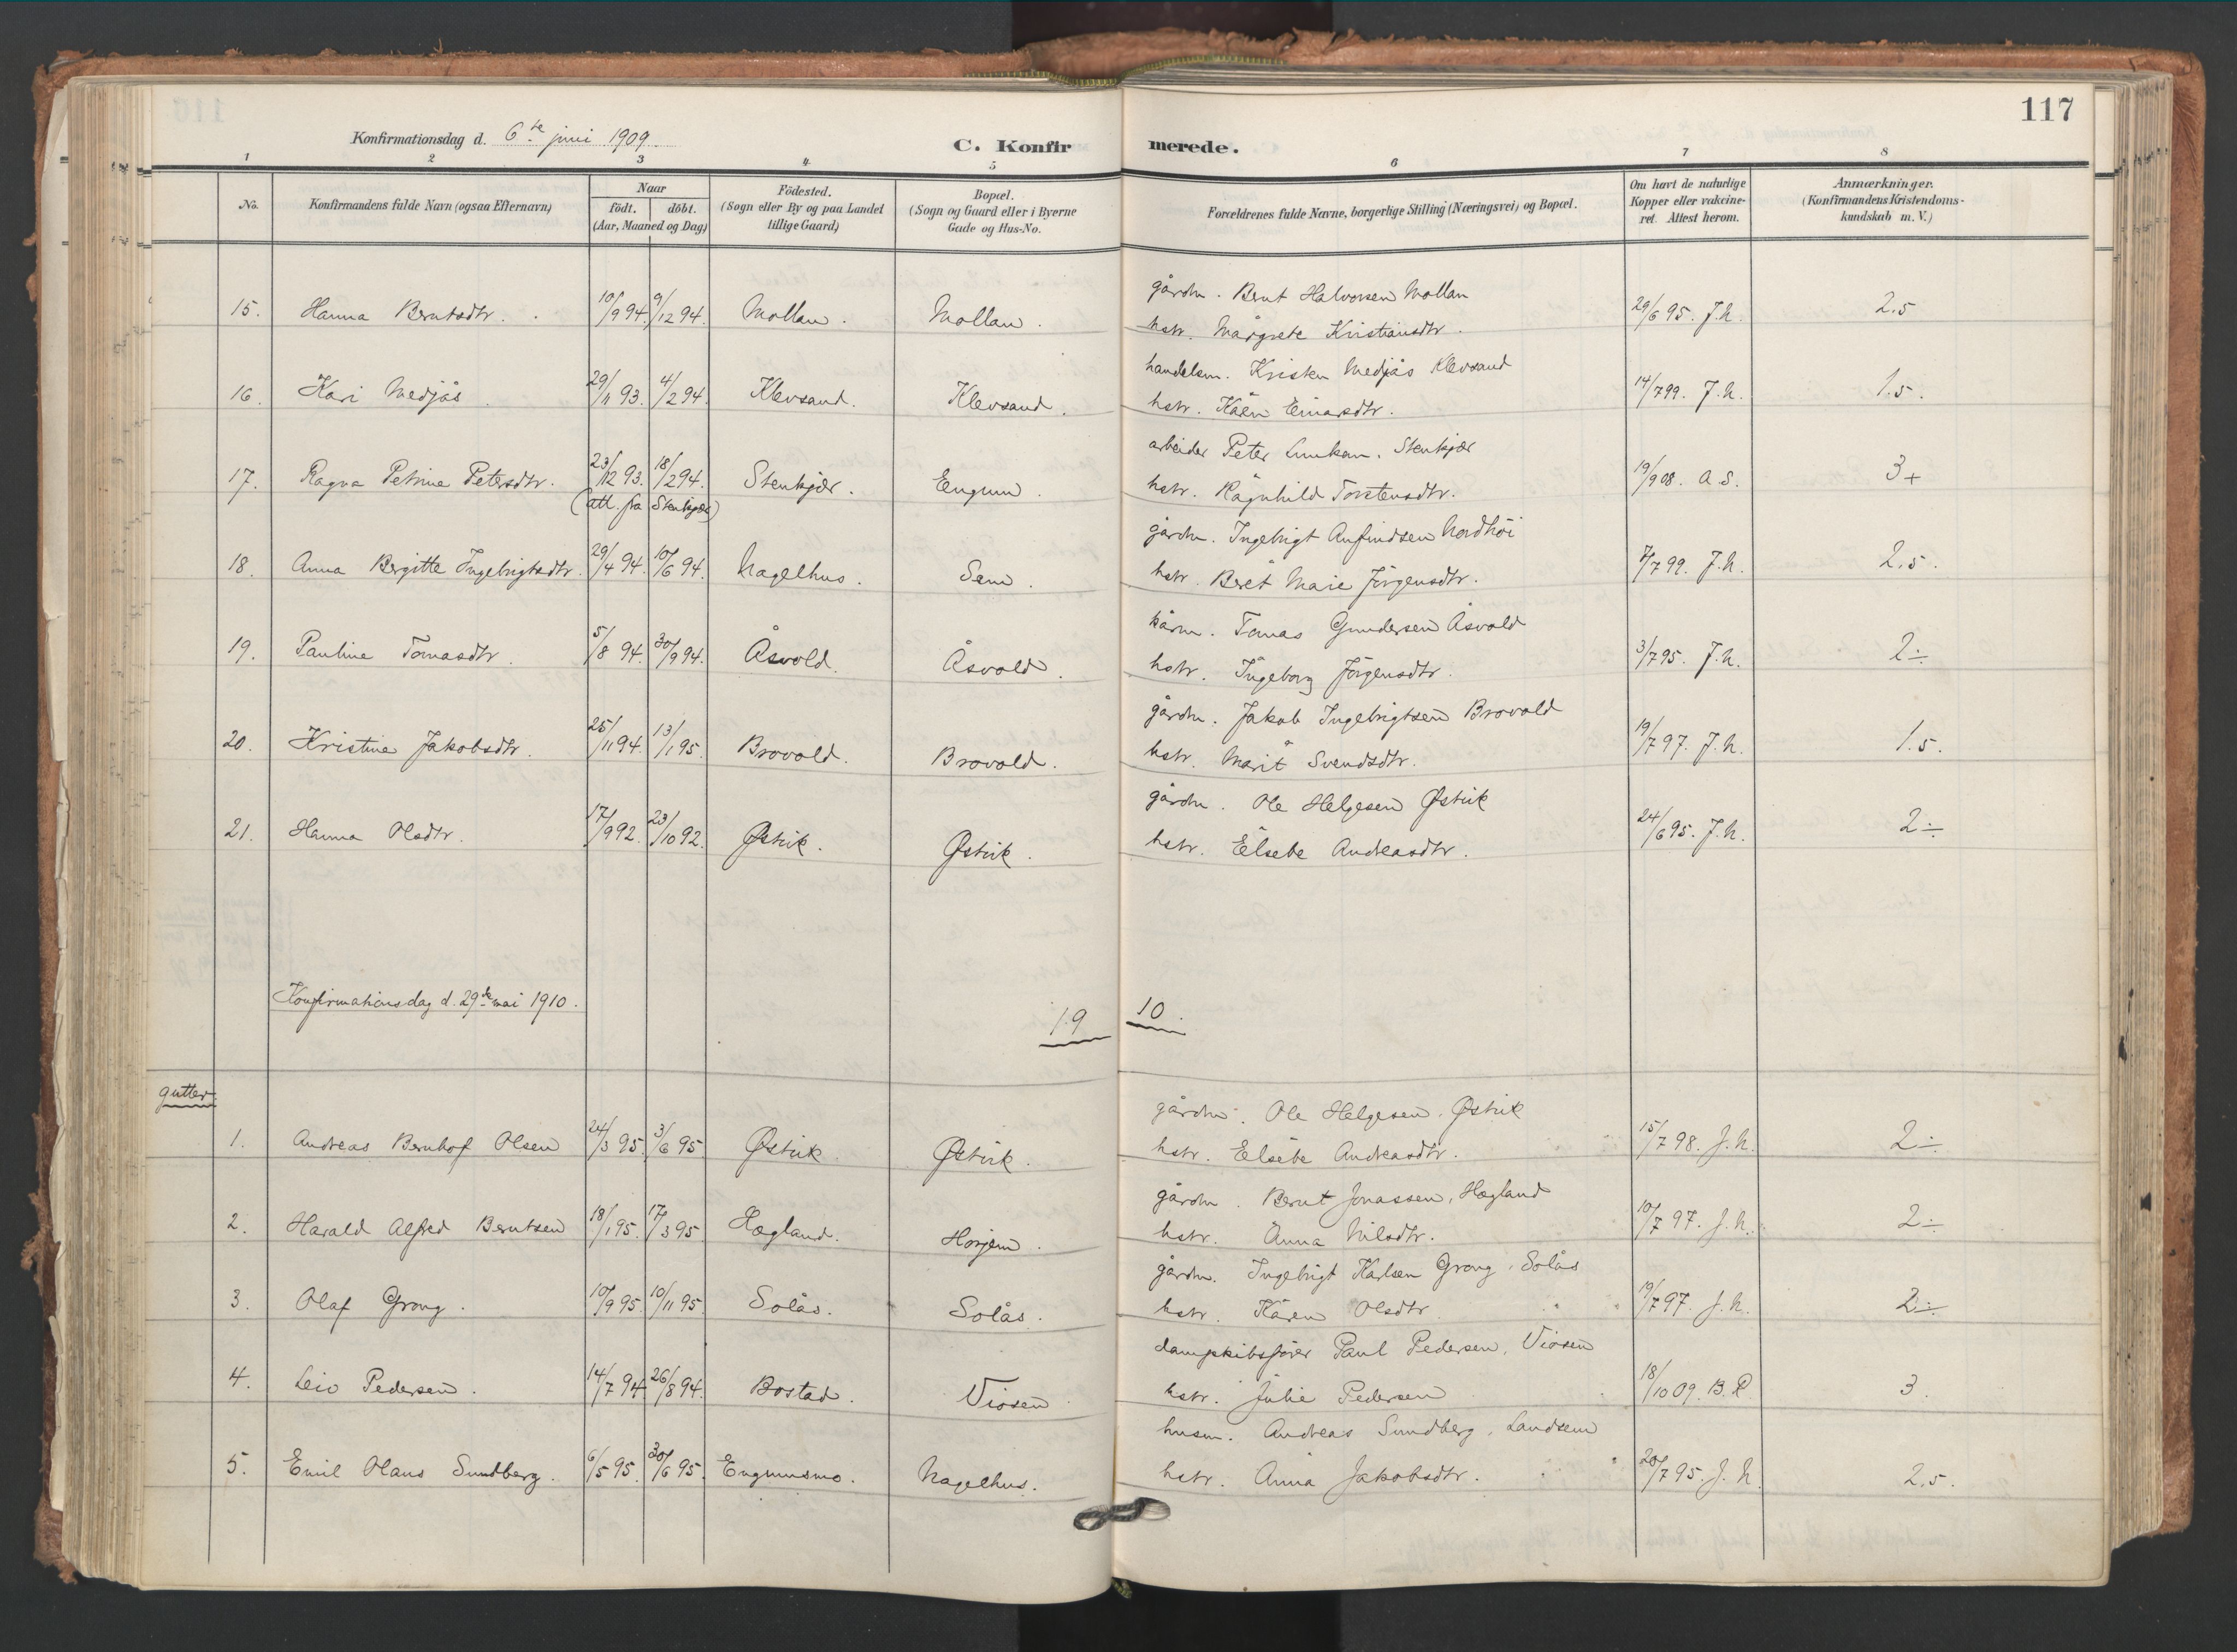 117
Konfirmationsdag d. 6te juni 1909.
C. Konfirmerede.
1 2 3 4 5 6 7 8
No.
Konfirmandens fulde Navn (ogsaa Efternavn)
Naar
födt. döbt.
(Aar, Maaned og Dag)
Födested.
(Sogn eller By og paa Landet
tillige Gaard)
Bopæl.
(Sogn og Gaard eller i Byerne
Gade og Hus-No.
Forældrenes fulde Navne, borgerlige Stilling (Næringsvei) og Bopæl.
Om havt de naturlige
Kopper eller vakcine-
ret. Attest herom.
Anmærkninger.
(Konfirmandens Kristendoms-
kundskab m. V.)
gårdm. Bernt Halvorsen Mollan
15. Hanna Berntsdtr. 10/9 94. 9/12 94. Mollan. Mollan. 29/6 95. J.N. 2.5
hstr. Margrete Kristiansdtr.
handelsm. Kristen Medjås Klevsand
16. Kari Medjås 29/11 93. 4/2 94. Klevsand. Klevsand. 14/7 99. J.N. 1.5.
hstr. Karen Einarsdtr.
arbeider Peter Lunkan. Stenkjær
17. Ragna Petrine Petersdtr. 23/12 93. 18/2 94. Stenkjær. Engum. 19/9 08. A.S. 3+
(att. fra Stenkjær)
hstr. Ragnhild Torstensdtr.
gårdm. Ingebrigt Anfindsen Nordhöi
18. Anna Bergitte Ingebrigtsdtr. 29/4 94. 10/6 94. Nagelhus. Sem. 7/7 99. J.N. 2.5.
hstr. Beret Marie Jörgensdtr.
kårm. Tomas Gundersen Åsvold
19. Pauline Tomasdtr. 5/8 94. 30/9 94. Åsvold. Åsvold. 3/7 95. J.N. 2÷
hstr. Ingeborg Jörgensdtr.
gårdm. Jakob Ingebrigtsen Brovold
20. Kristine Jakobsdtr. 25/11 94. 13/1 95. Brovold. Brovold. 19/7 97. J.N. 1.5.
hstr. Marit Svendsdtr.
gårdm. Ole Helgesen Østvik
21. Hanna Olsdtr. 17/9 92. 23/10 92. Østvik. Østvik. 24/6 95. J.N. 2÷
hstr. Elsebe Andreasdtr.
Konfirmationsdag d. 29de mai 1910.
19 10.
gutter:
gårdm. Ole Helgesen. Østvik
1. Andreas Bernhof Olsen 24/3 95. 3/6 95. Østvik. Østvik. 15/7 98. J.N. 2÷
hstr. Elsebe Andreasdtr.
gårdm. Bernt Jonassen, Hægland
2. Harald Alfred Berntsen 18/1 95. 17/3 95. Hægland. Horjem. 10/7 97. J.N. 2÷
hstr. Anna Nilsdtr.
gårdm. Ingebrigt Karlsen Grong, Solås
3. Olaf Grong. 10/9 95. 10/11 95. Solås. Solås. 19/7 97. J.N. 2÷
hstr. Karen Olsdtr
dampskibsförer Paul Pedersen, Viosen
4. Leiv Pedersen. 14/7 94. 26/8 94. Bostad. Viosen 18/10 09. B.R. 3.
hstr. Julie Pedersen
husm. Andreas Sundberg, Landsem
5. Emil Olaus Sundberg. 6/5 95. 30/6 95. Engumsmo. Nagelhus. 20/7 95. J.N 2.5.
hstr. Anna Jakobsdtr.